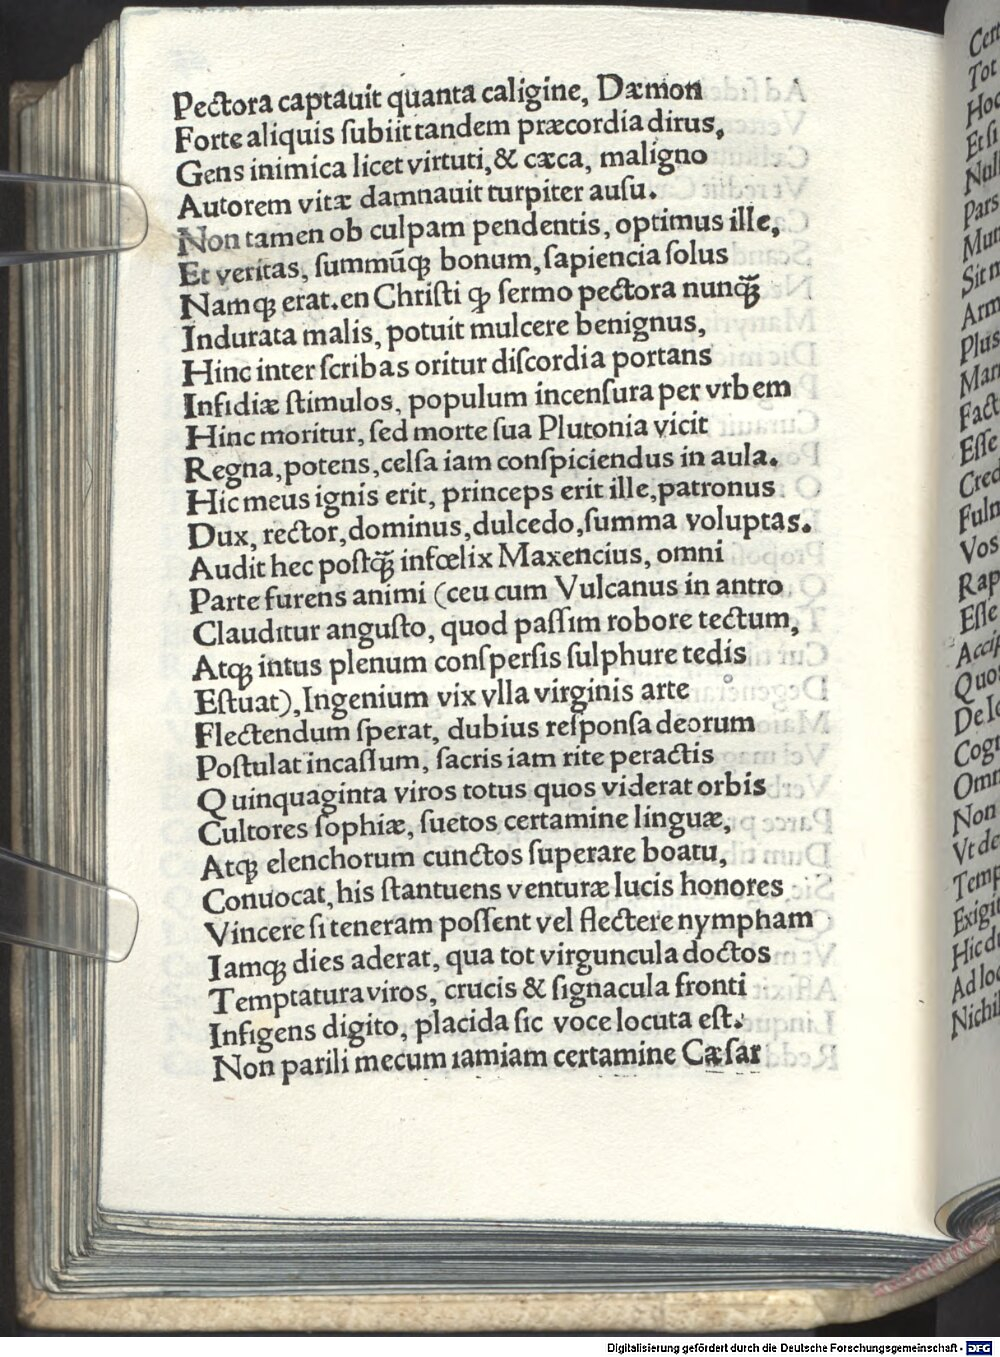 Pectora captauit quanta caligine, Dæmon
Forte aliquis ſubiit tandem præcordia dirus,
Gens inimica licet virtuti, & cæca, maligno
Autorem vitæ damnauit turpiter auſu.
Non tamen ob culpam pendentis, optimus ille,
Et veritas, ſummũꝗ bonum, ſapiencia ſolus
Namꝗ erat. en Chriſti ꝙ ſermo pectora nunꝗ̃
Indurata malis, potuit mulcere benignus,
Hinc inter ſcribas oritur diſcordia portans
Inſidiæ ſtimulos, populum incenſura per vrbem
Hinc moritur, ſed morte ſua Plutonia vicit
Regna, potens, celſa iam conſpiciendus in aula.
Hic meus ignis erit, princeps erit ille, patronus
Dux, rector, dominus, dulcedo, ſumma voluptas.
Audit hec poſtꝗ̃ infœlix Maxencius, omni
Parte furens animi (ceu cum Vulcanus in antro
Clauditur anguſto, quod paſſim robore tectum,
Atꝗ intus plenum conſperſis ſulphure tedis
Eſtuat), Ingenium vix vlla virginis arte
Flectendum ſperat, dubius reſponſa deorum
Poſtulat incaſſum, ſacris iam rite peractis
Quinquaginta viros totus quos viderat orbis
Cultores ſophiæ, ſuetos certamine linguæ,
Atꝗ elenchorum cunctos ſuperare boatu,
Conuocat, his ſtantuens venturæ lucis honores
Vincere ſi teneram poſſent vel flectere nympham
Iamꝗ dies aderat, qua tot virguncula doctos
Temptatura viros, crucis & ſignacula fronti
Infigens digito, placida ſic voce locuta eſt.
Non parili mecum iamiam certamine Cæſar
Cert
Tot
Hoc
Et ſi
Nul
Pars
Mun
Sit m
Arm
Plus
Man
Fact
Eſſe
Cred
Fuln
Vos
Rap
Eſſe
Accip
Quo
De Io
Cogn
Omn
Non
Vt de
Temp
Exigit
Hic du
Ad loc
Nichil
Digitalisierung gefördert durch die Deutsche Forschungsgemeinschaft - DFG